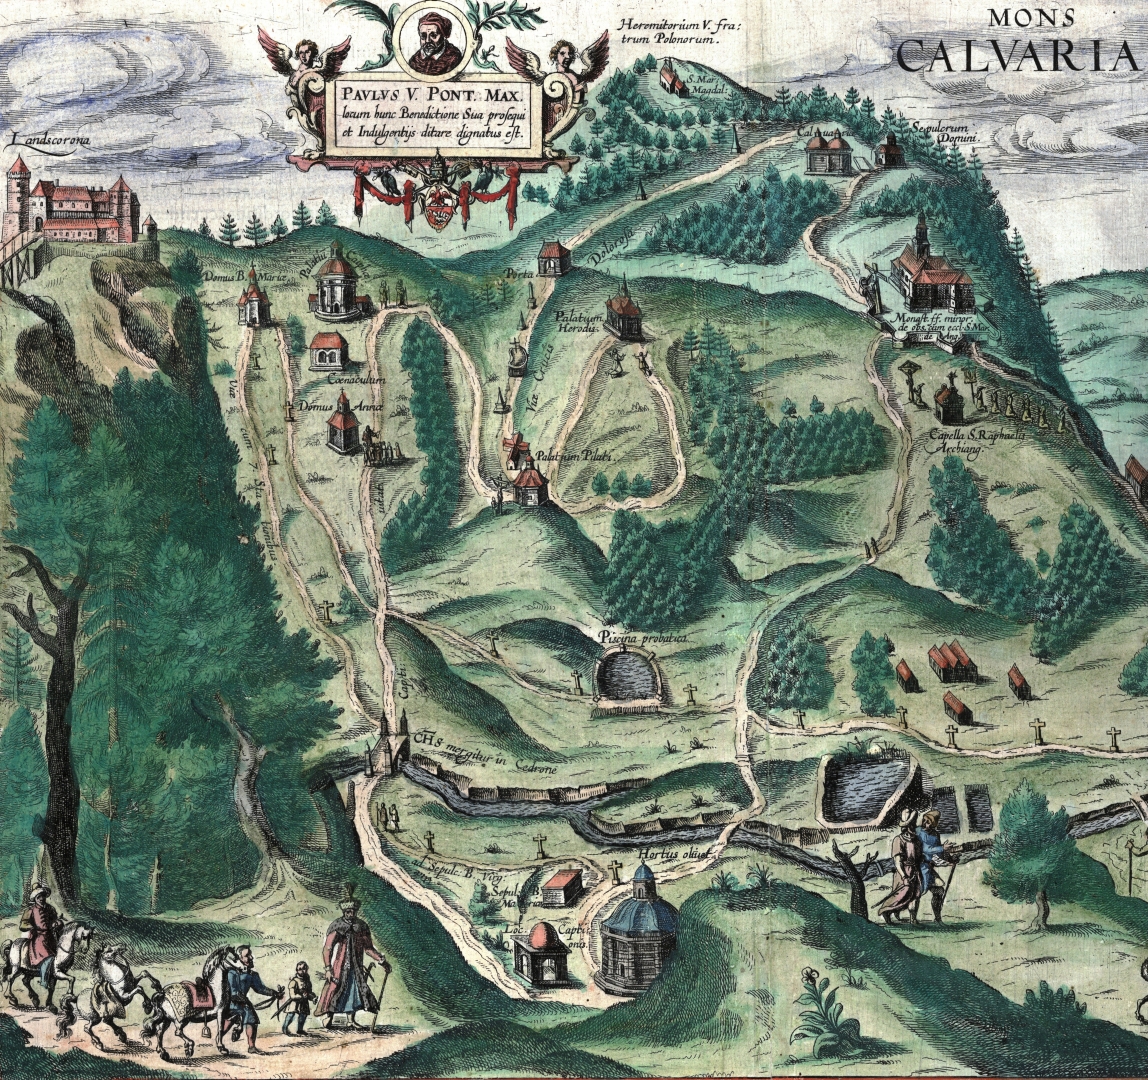 MONS
CALVARIA
Heremitorium V. fra:
trum Polonorum.
PAVLVS V. PONT. MAX.
locum hunc Benedictione Sua prosequi
et Indulgentijs ditare dignatus est.
Landscorona
S. Mar:
Magdal:
Caluaria
Sepulcrum
Domini.
Domus B. Mariæ
Porta
Dolorosa
Palatium
Herodis.
Monast. ff. minor.
de obs.
Cœnaculum
Viæ Crucis
Domus Annæ
Palatium Pilati.
Capella S. Raphaelis
Archiang.
Piscina probatica
Capti
CHS mergitur in Cedrone
Hortus oliuet.
Sepulc. B. Virg:
Sepul. B.
Mariæ
Loc. Capti
onis.